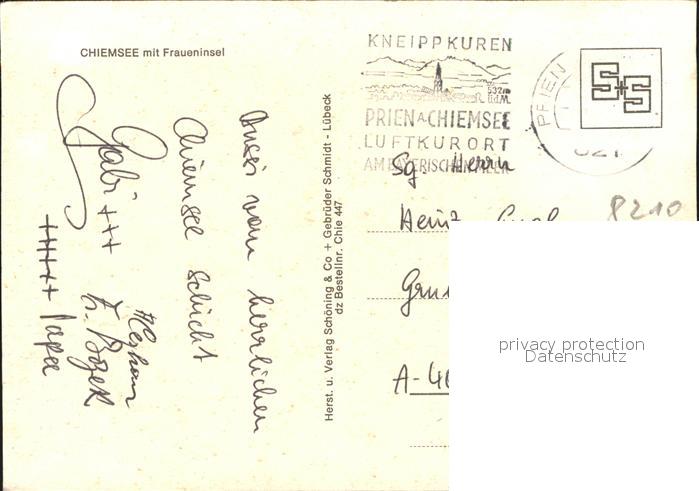 CHIEMSEE mit Fraueninsel
Bussi vom herrlichen
Chiemsee schickt
Gabi +++
+++++ Papa
Herst. u. Verlag Schöning & Co + Gebrüder Schmidt - Lübeck
dz Bestellnr. Chie 447
KNEIPPKUREN
532m
ü.d.M.
PRIEN A. CHIEMSEE
LUFTKURORT
AM BAYERISCHEN MEER
PRIEN
821
Sg. Herrn
Heinz
A-46
8210
privacy protection
Datenschutz